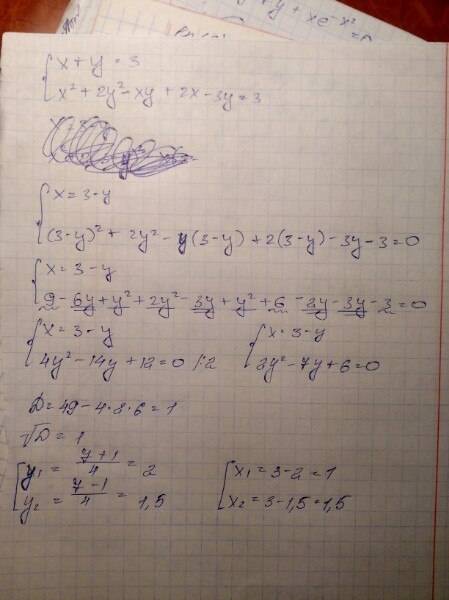 y + xe^{-x²}
= 0
{ x + y = 3
x² + 2y² - xy + 2x - 3y = 3
{ x = 3 - y
(3-y)² + 2y² - y(3-y) + 2(3-y) - 3y - 3 = 0
{ x = 3 - y
9 - 6y + y² + 2y² - 3y + y² + 6 - 2y - 3y - 3 = 0
{ x = 3 - y { x = 3 - y
4y² - 14y + 12 = 0 |:2 2y² - 7y + 6 = 0
D = 49 - 4·2·6 = 1
√D = 1
[ y₁ = (7+1)/4 = 2 [ x₁ = 3 - 2 = 1
y₂ = (7-1)/4 = 1,5 x₂ = 3 - 1,5 = 1,5